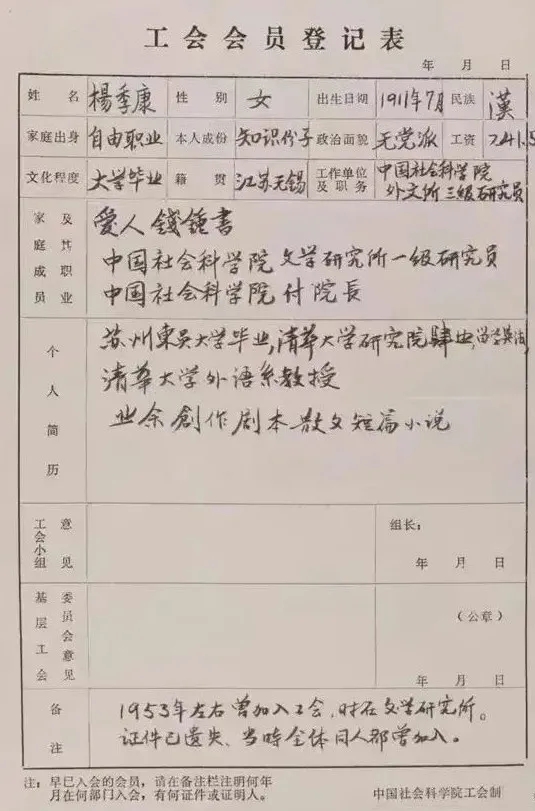 工会会员登记表
年 月 日
姓名 楊季康 性别 女 出生日期 1911年7月 民族 漢
家庭出身 自由职业 本人成份 知识份子 政治面貌 无党派 工资 241.5
文化程度 大学毕业 籍贯 江苏无锡 工作单位及职务 中国社会科学院
外文所 三级研究员
家庭成员及其职业 爱人 錢鍾書
中国社会科学院 文学研究所一级研究员
中国社会科学院 付院長
个人简历 苏州東吴大学毕业,清華大学研究院肆业,留学英法,
清華大学外语系教授
业余創作剧本散文短篇小说
工会小组意见 组长:
年 月 日
基层工会委员会意见 (公章)
年 月 日
备注 1953年左右曾加入工会,时在文学研究所。
证件已遗失、当時全体同人都曾加入。
注:早已入会的会员,请在备注栏注明何年
月在何部门入会,有何证件或证明人。 中国社会科学院工会制